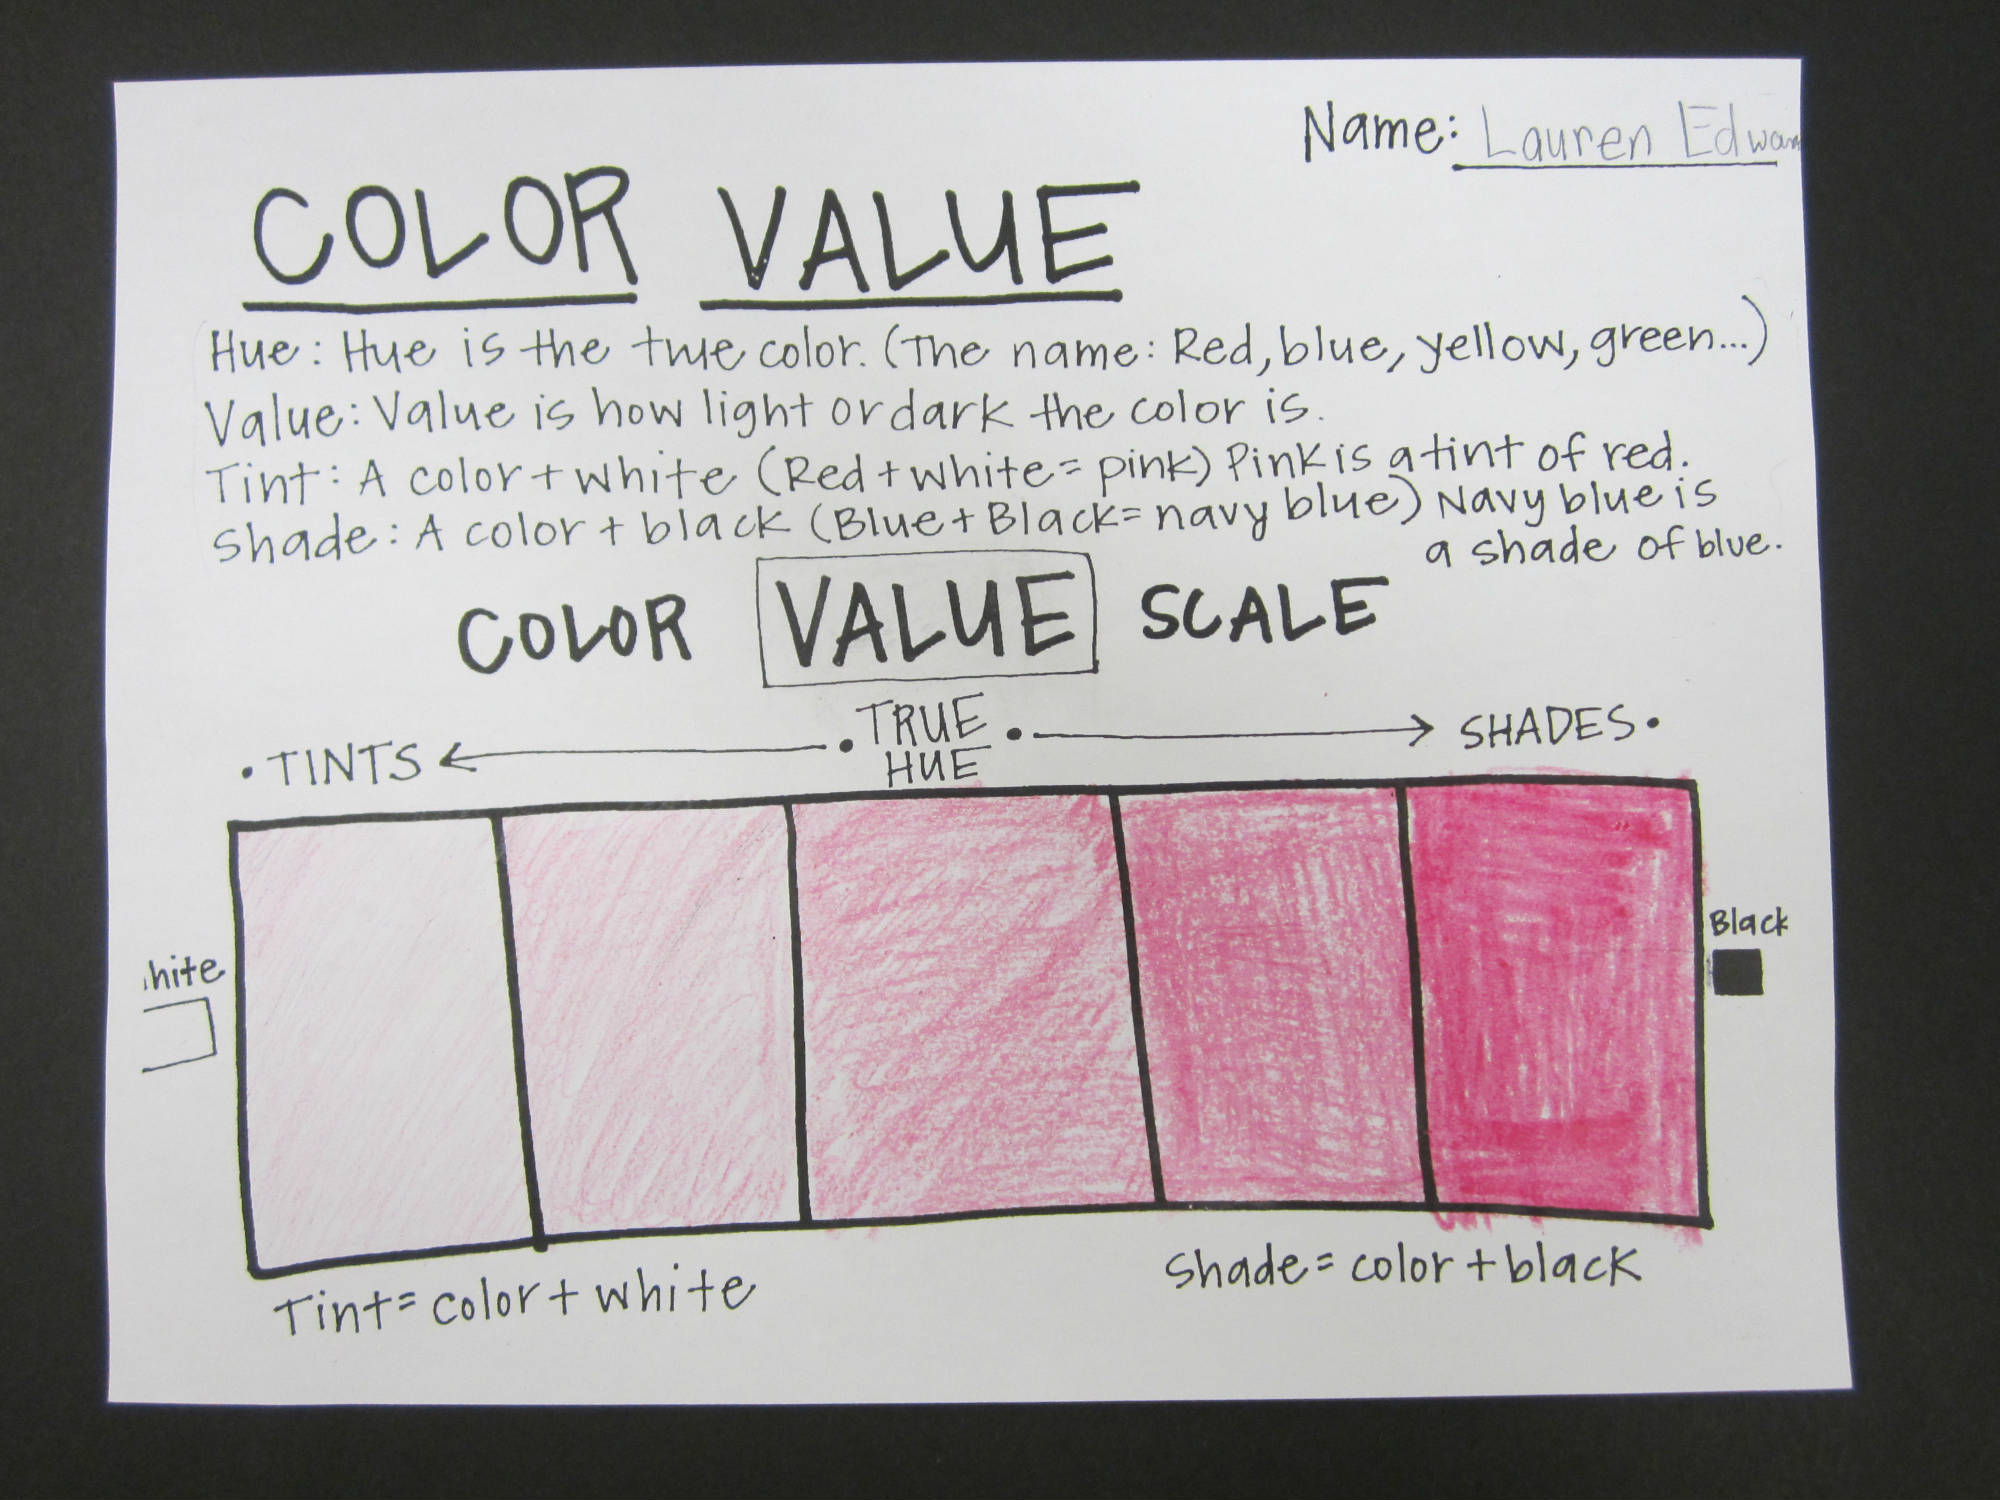 Name: Lauren Edwar
COLOR VALUE
Hue: Hue is the true color. (The name: Red, blue, yellow, green...)
Value: Value is how light or dark the color is.
Tint: A color + white (Red + white = pink) Pink is a tint of red.
Shade: A color + black (Blue + Black = navy blue) Navy blue is
a shade of blue.
COLOR VALUE SCALE
• TINTS ← • TRUE • → SHADES •
HUE
Black
hite
Tint = color + white
Shade = color + black